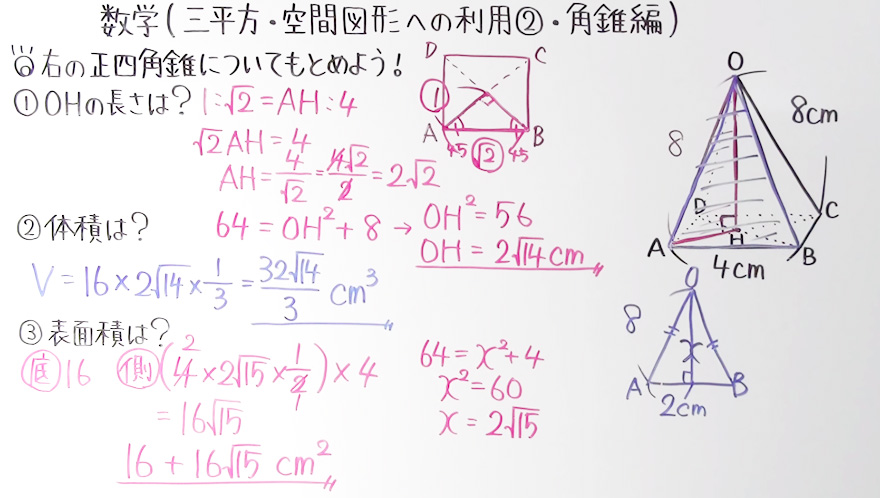 数学(三平方・空間図形への利用②・角錐編)
右の正四角錐についてもとめよう!
①OHの長さは? 1:√2=AH:4
√2AH=4
AH=4/√2=4√2/2=2√2
D C
①
A B
45 √2 45
②体積は? 64=OH²+8→OH²=56
OH=2√14cm
V=16×2√14×1/3=32√14/3 cm³
③表面積は?
底16 側(4×2√15×1/2)×4
2
1
=16√15
16+16√15 cm²
64=x²+4
x²=60
x=2√15
O
8cm
8
D C
H
A B
4cm
O
8
x
A B
2cm